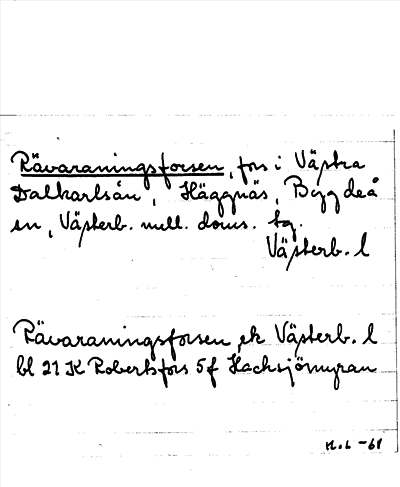 Rävaraningsforsen, fors i Västra
Dalkarlsån, Häggnäs, Bygdeå
sn, Västerb. mell. doms. tg.
Västerb. l
Rävaraningsforsen ek Västerb. l
bl 21 K Robertsfors 5f Hacksjömyran
H.L -61